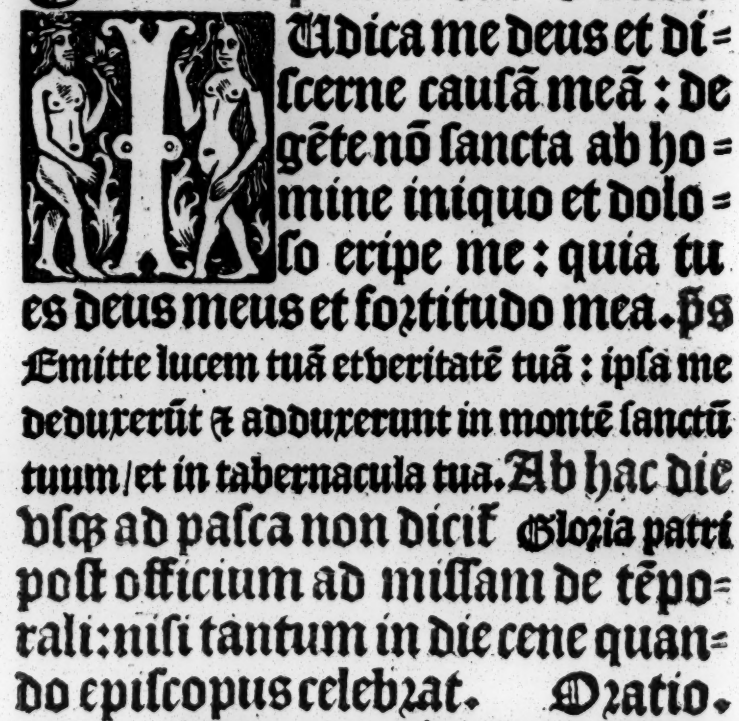 IUdica me deus et di=
ſcerne cauſā meā : de
gēte nō ſancta ab ho=
mine iniquo et dolo=
ſo eripe me : quia tu
es deus meus et fortitudo mea. p̄s
Emitte lucem tuā et veritatē tuā : ipſa me
deduxerūt ⁊ adduxerunt in montē ſanctū
tuum/et in tabernacula tua. Ab hac die
vſqꝫ ad paſca non dicit̄ Gloria patri
poſt officium ad miſſam de tēpo=
rali : niſi tantum in die cene quan=
do epiſcopus celebrat. Oratio.